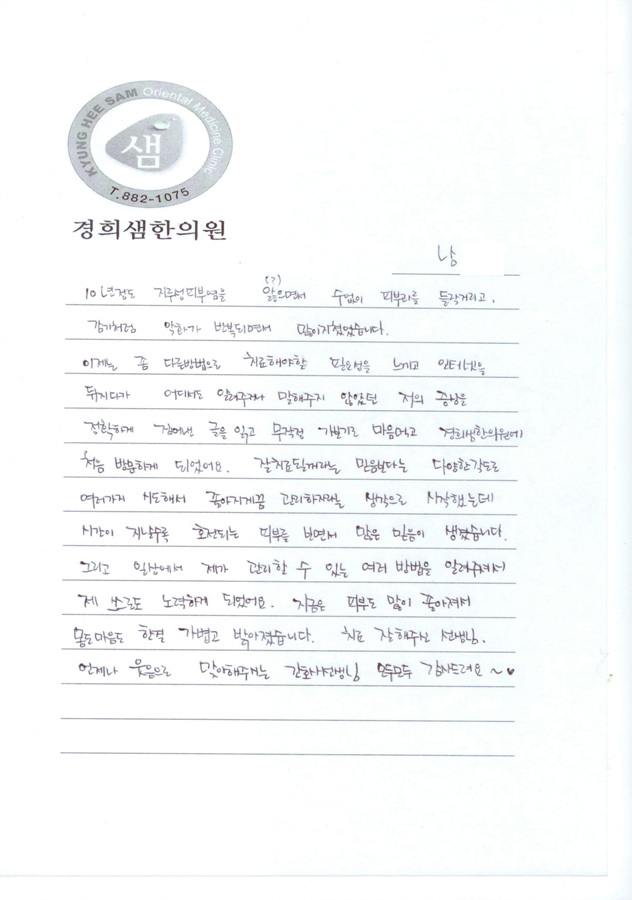 KYUNG HEE SAM Oriental Medicine Clinic
샘
T.882-1075
경희샘한의원
남
(?)
10년정도 지루성피부염을 앓으면서 수없이 피부과를 들락거리고,
감기처럼 악화가 반복되면서 많이지쳤었습니다.
이제는 좀 다른방법으로 치료해야할 필요성을 느끼고 인터넷을
뒤지다가 어디서도 알려주거나 말해주지 않았던 저의 증상을
정확하게 집어낸 글을 읽고 무작정 가보기로 마음먹고 경희샘한의원에
처음 방문하게 되었어요. 잘치료될꺼라는 믿음보다는 다양한각도로
여러가지 시도해서 좋아지게끔 관리하자라는 생각으로 시작했는데
시간이 지날수록 호전되는 피부를 보면서 많은 믿음이 생겼습니다.
그리고 일상에서 제가 관리할 수 있는 여러 방법을 알려주셔서
제 스스로도 노력하게 되었어요. 지금은 피부도 많이 좋아져서
몸도마음도 한결 가볍고 밝아졌습니다. 치료 잘해주신 선생님,
언제나 웃음으로 맞아해주시는 간호사선생님 모두모두 감사드려요~♥